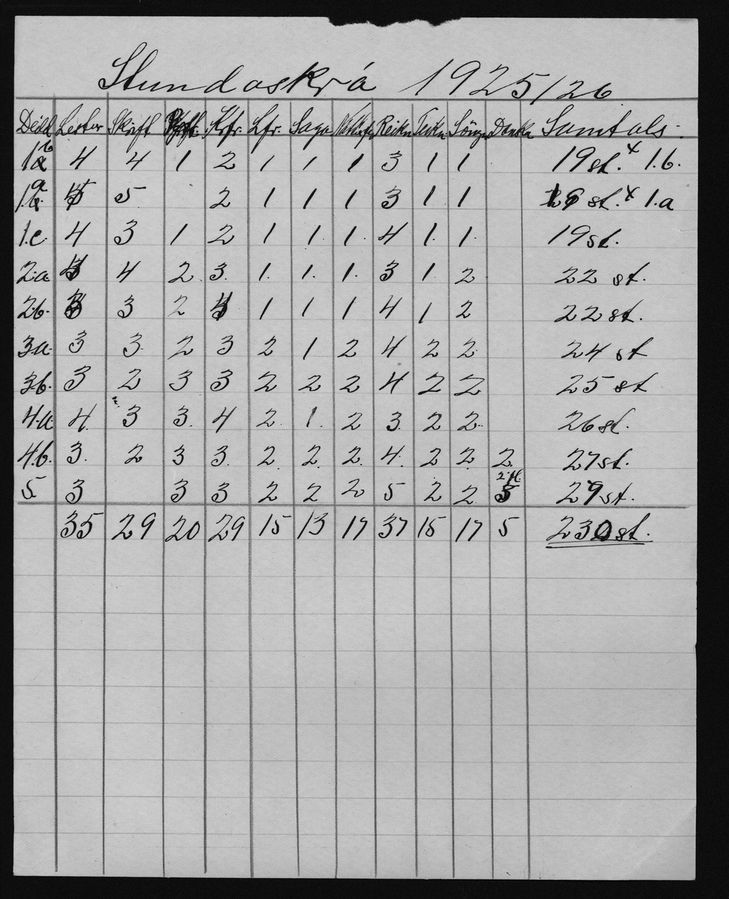 Stundaskrá 1925/26
Deild Lestur Skrift Kfr. Lfr. Saga Reikn Teikn Söng Dansk Samtals.
1b 4 4 1 2 1 1 1 3 1 1 19 st. x 1.b.
1a 5 2 1 1 1 3 1 1 st. x 1.a
1.c 4 3 1 2 1 1 1 4 1 1 19 st.
2.a 4 2 3 1 1 1 3 1 2 22 st.
2.b. 3 2 1 1 1 4 1 2 22 st.
3a 3 3 2 3 2 1 2 4 2 2 24 st
3b. 3 2 3 3 2 2 2 4 2 2 25 st
4.a 4 3 3 4 2 1 2 3 2 2 26 st.
4.b. 3 2 3 3 2 2 2 4 2 2 2 27 st.
5. 3 3 3 2 2 2 5 2 2 29 st.
35 29 20 29 15 13 17 37 15 17 5 230 st.